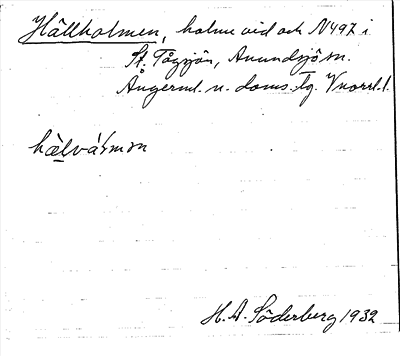 Hällholmen, holme vid och N497 i
St. Tågsjön, Anundsjö sn.
Ångerml. n. doms. tg. Vnorrl. l.
hälvásmɔn
H. A. Söderberg 1932